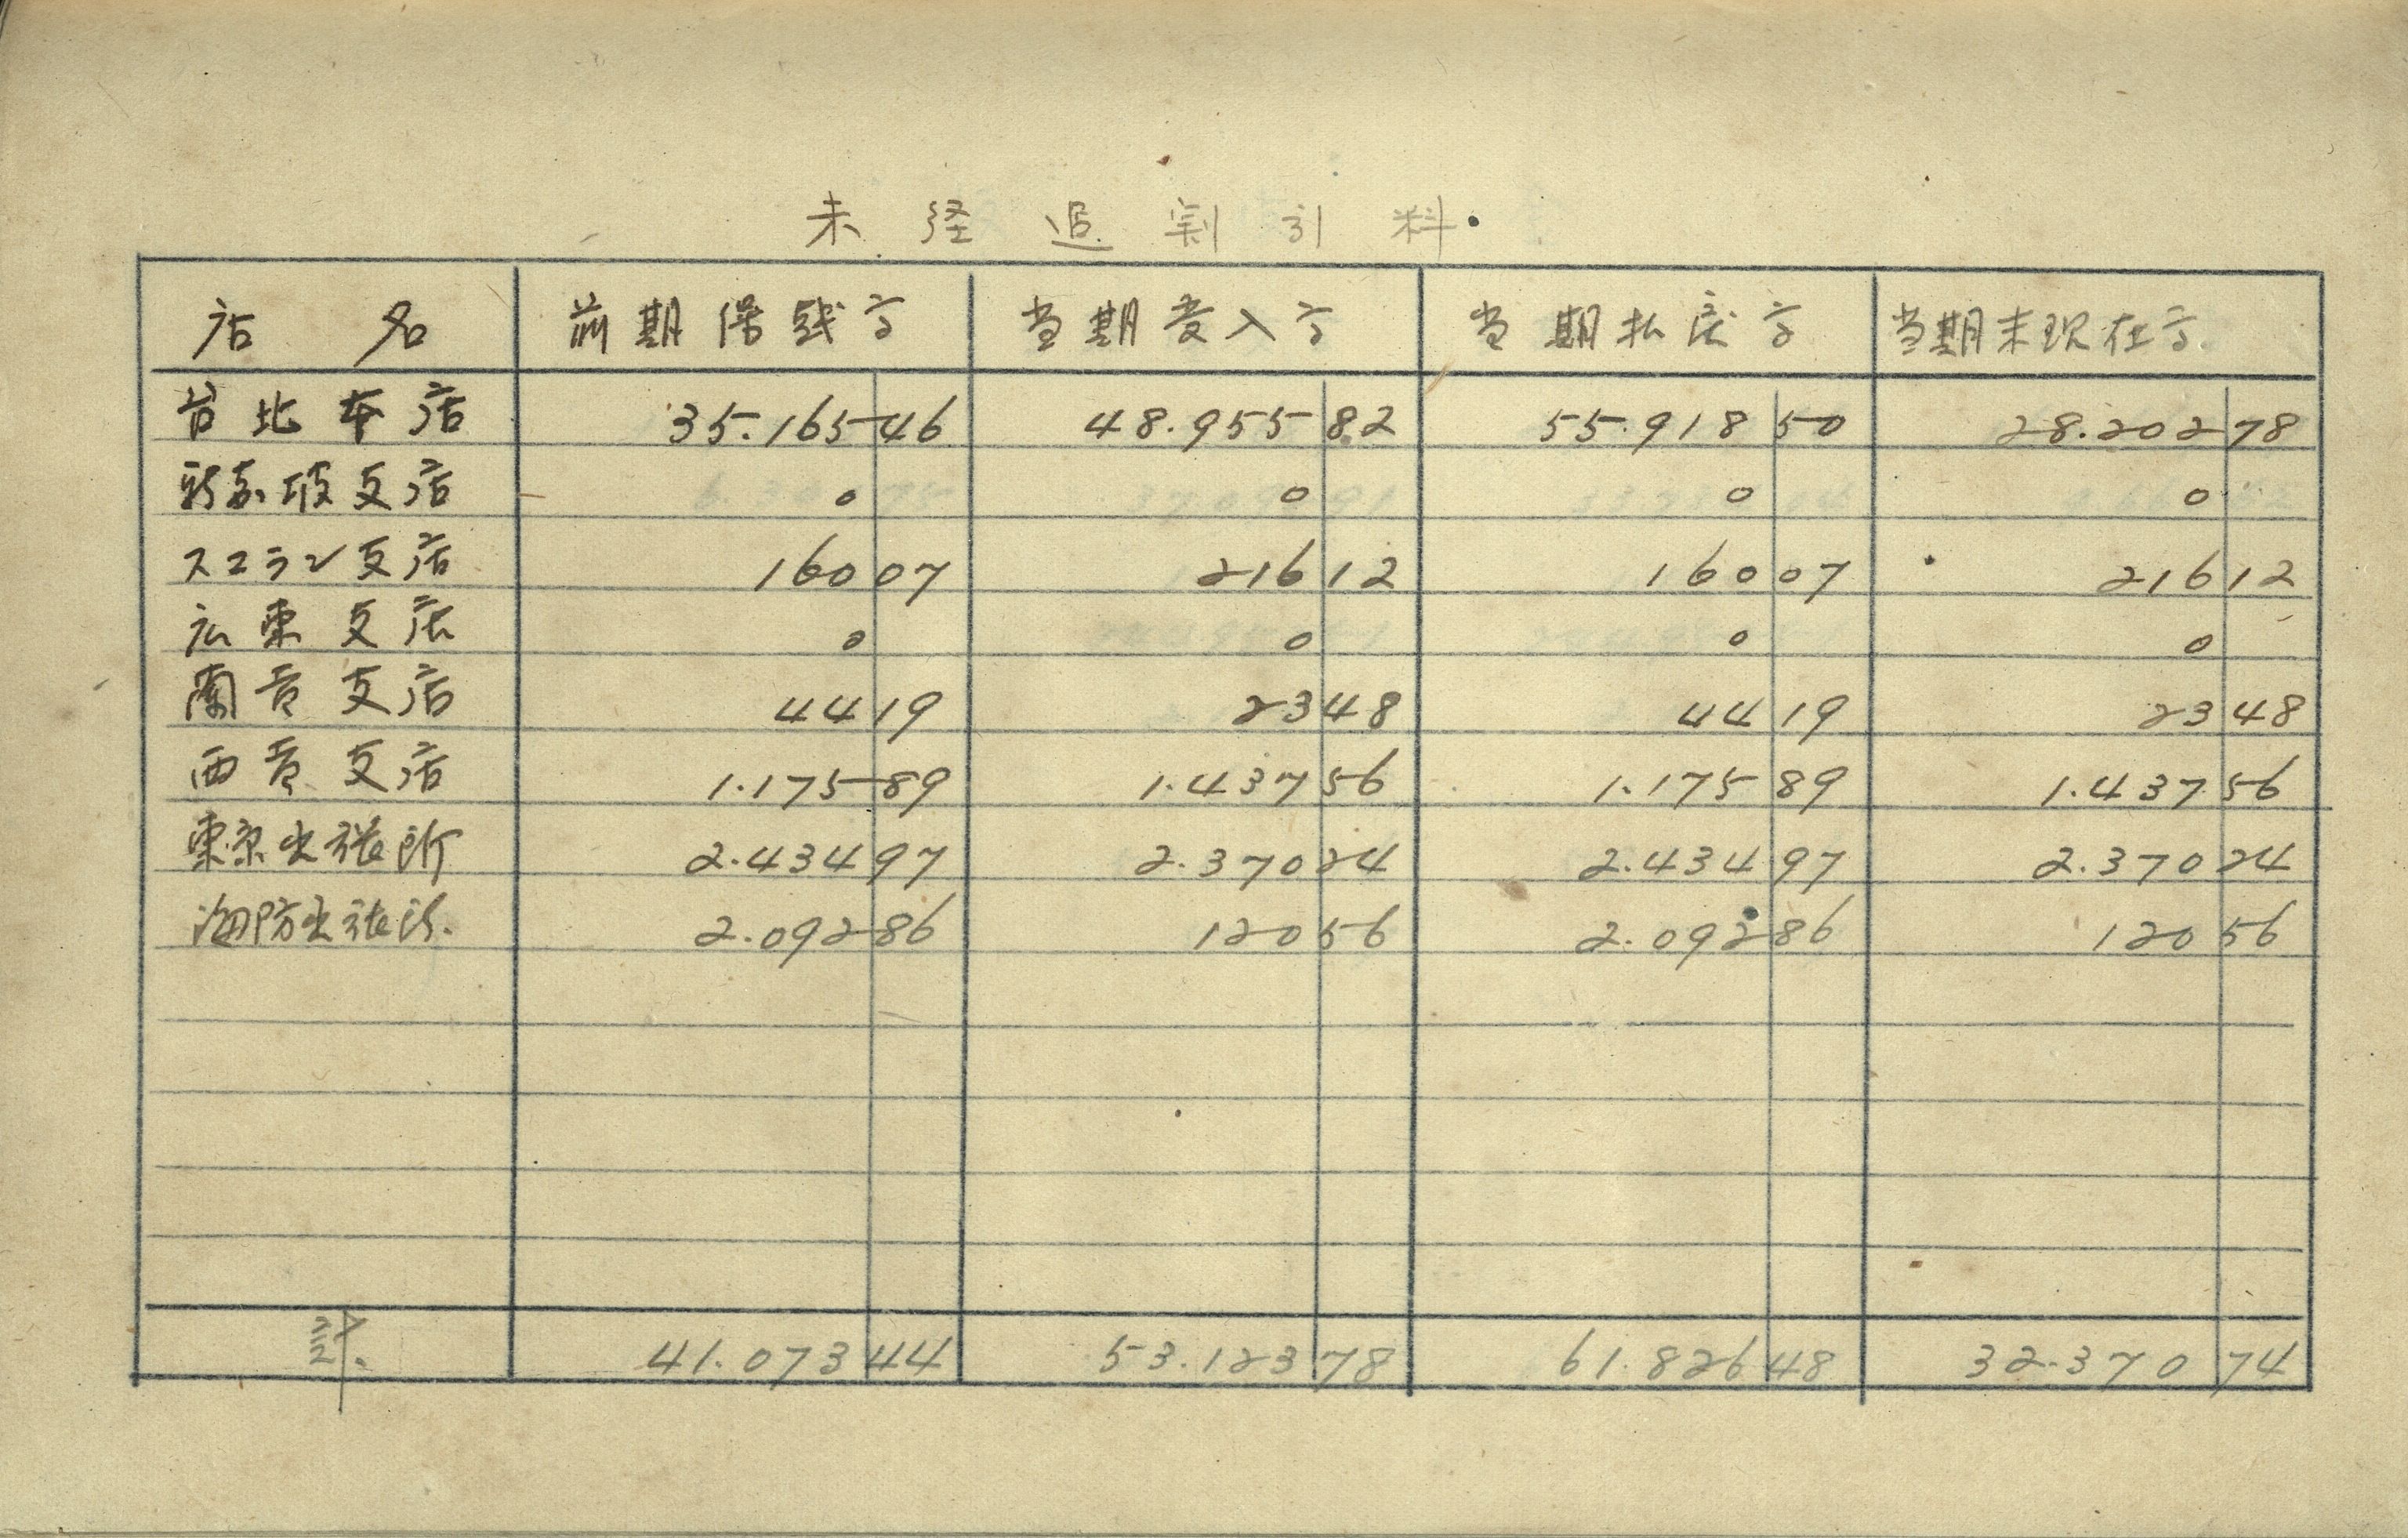 未経過割引料.
店名 前期繰越高 当期受入高 当期払戻高 当期末現在高.
台北本店 35.165 46 48.955 82 55.918 50 28.202 78
新嘉坡支店 0 0 0 0
スマラン支店 160 07 216 12 160 07 216 12
広東支店 0 0 0 0
蘭貢支店 44 19 23 48 44 19 23 48
西貢支店 1.175 89 1.437 56 1.175 89 1.437 56
東京出張所 2.434 97 2.370 24 2.434 97 2.370 24
海防出張所. 2.092 86 120 56 2.092 86 120 56
計. 41.073 44 53.123 78 61.826 48 32.370 74